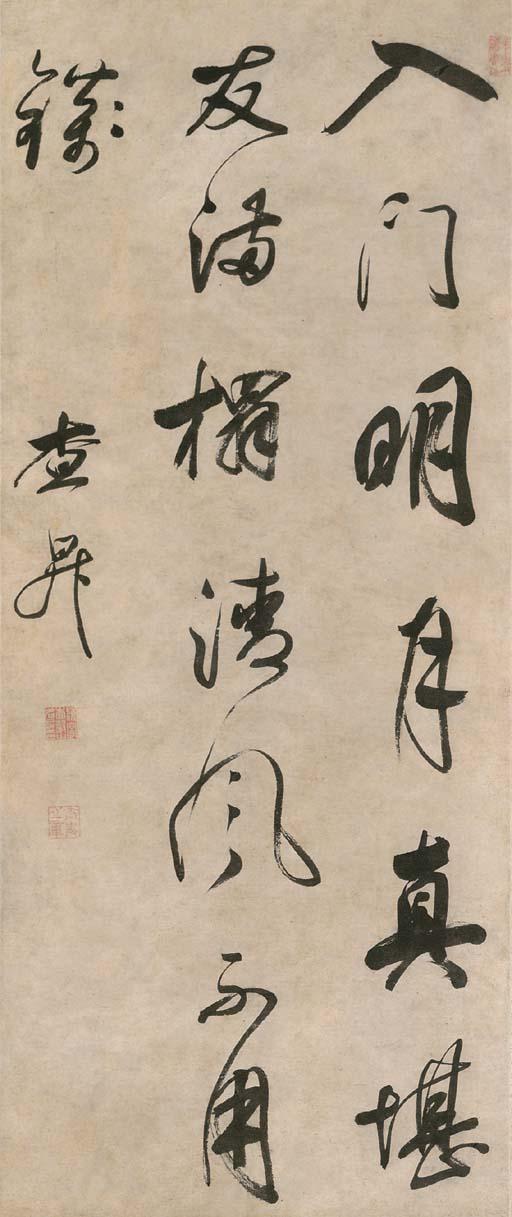 入门明月真堪
友满榻清风不用
錢
查昇